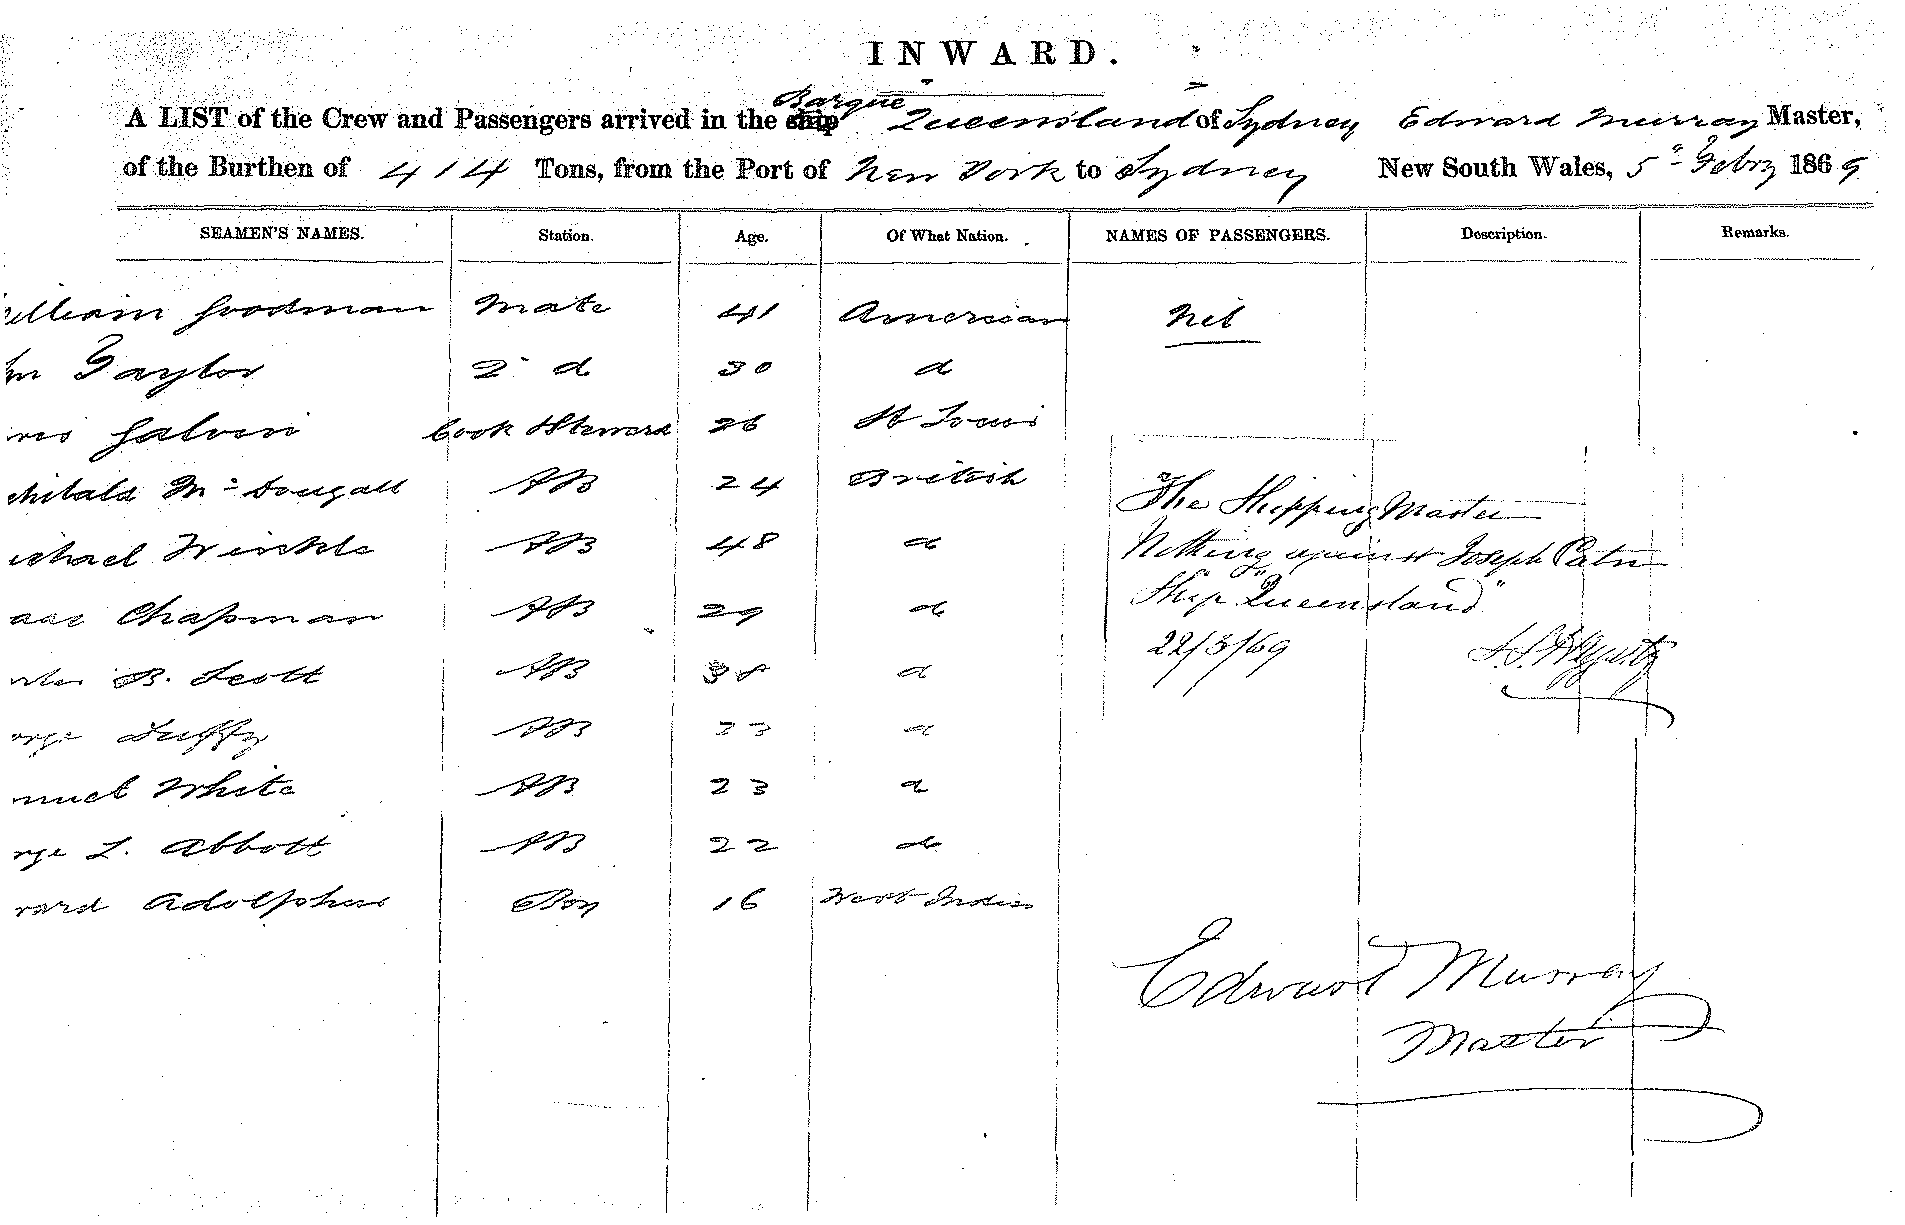 INWARD.
A LIST of the Crew and Passengers arrived in the ship Barque Queensland of Sydney Edward Murray Master,
of the Burthen of 414 Tons, from the Port of New York to Sydney New South Wales, 5th Febry 1869
SEAMEN'S NAMES. Station. Age. Of What Nation. NAMES OF PASSENGERS. Description. Remarks.
illiam Goodman Mate 41 American Nil
hn Taylor 2d 30 d
Galvin Cook & Steward 26 St Louis
chibald McDougall AB 24 British
ichael Winkle AB 48 d
aac Chapman AB 29 d
B. Scott AB 38 d
orge Duffy AB 23 d
muel White AB 23 d
rge L. Abbott AB 22 d
ward Adolphus Boy 16 West Indies
The Shipping Master
Nothing against Joseph
Ship "Queensland"
22/3/69
Edward Murray
Master